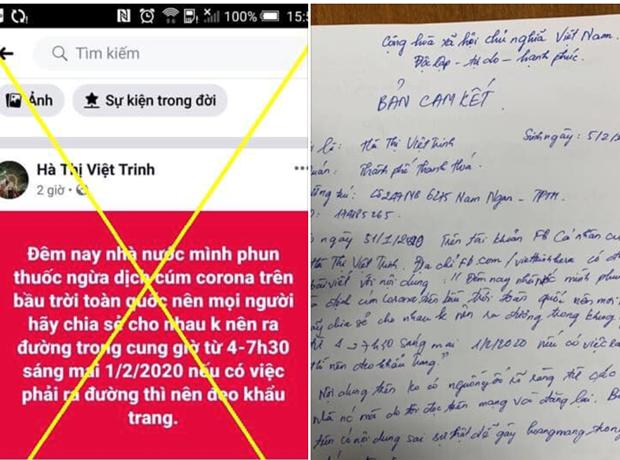 100% 15:5
Tìm kiếm
Ảnh
Sự kiện trong đời
Hà Thị Việt Trinh
2 giờ
Đêm nay nhà nước mình phun
thuốc ngừa dịch cúm corona trên
bầu trời toàn quốc nên mọi người
hãy chia sẻ cho nhau k nên ra
đường trong cung giờ từ 4-7h30
sáng mai 1/2/2020 nếu có việc
phải ra đường thì nên đeo khẩu
trang.
Cộng hòa xã hội chủ nghĩa Việt Nam.
Độc lập - tự do - hạnh phúc.
BẢN CAM KẾT.
Hà Thị Việt Trinh Sinh ngày: 5/2/
Thành phố Thanh Hoá.
Nam Ngạn - TPTH
ngày 31/1/2020 Trên tài khoản FB cá nhân
Hà Thị Việt Trinh. Địa chỉ fb.com/
bài viết với nội dung: "Đêm nay nhà nước mình phun
dịch cúm Corona trên bầu trời toàn quốc nên mọi
chia sẻ cho nhau k nên ra đường trong khung
4 - 7h30 sáng mai 1/2/2020 nếu có việc
thì nên đeo khẩu trang."
Nội dung trên ko có nguồn gốc rõ ràng
mà do tôi đọc trên mạng và đăng lại.
trên có nội dung sai sự thật dễ gây hoang mang trong